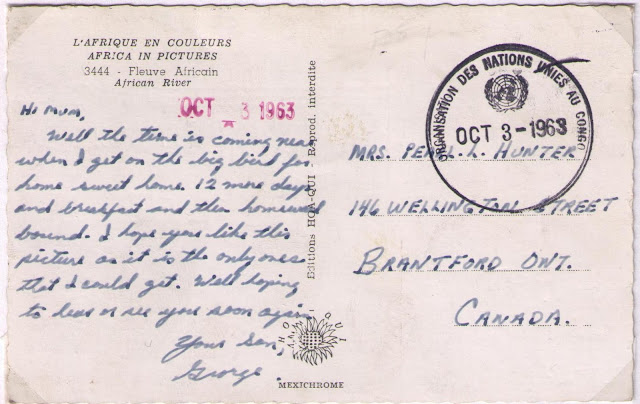 L'AFRIQUE EN COULEURS
AFRICA IN PICTURES
3444 - Fleuve Africain
African River
OCT 3 1963
Hi Mum,
Well the time is coming near
when I get on the big bird for
home sweet home. 12 more days
and breakfast and then homeward
bound. I hope you like this
picture as it is the only one
that I could get. Well hoping
to hear or see you soon again
Your Son,
George.
Editions HOA-QUI Reprod. interdite
HOA-QUI
MEXICHROME
ORGANISATION DES NATIONS UNIES AU CONGO
OCT 3 - 1963
MRS. PEARL. L. HUNTER
146 WELLINGTON STREET
BRANTFORD ONT.
CANADA.